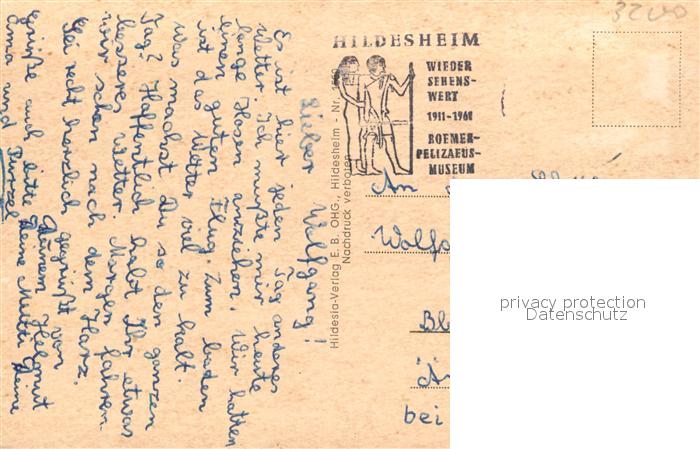 3200
HILDESHEIM
WIEDER
SEHENS-
WERT
1911-1961
ROEMER-
PELIZAEUS-
MUSEUM
Lieber Wolfgang!
Es ist hier jeden Tag anderes
Wetter. Ich mußte mir heute
lange Hosen anziehen. Wir hatten
einen guten Flug. Zum baden
ist das Wetter viel zu kalt.
Was machst du so den ganzen
Tag? Hoffentlich habt Ihr etwas
besseres Wetter. Morgen fahren
wir schon nach dem Harz.
Sei recht herzlich gegrüßt von
Deinem Helmut
Grüße auch bitte Deine Mutti Deine
Oma und
Hildesia-Verlag E. B. OHG., Hildesheim - Nr.
Nachdruck verboten
An
bei
privacy protection
Datenschutz